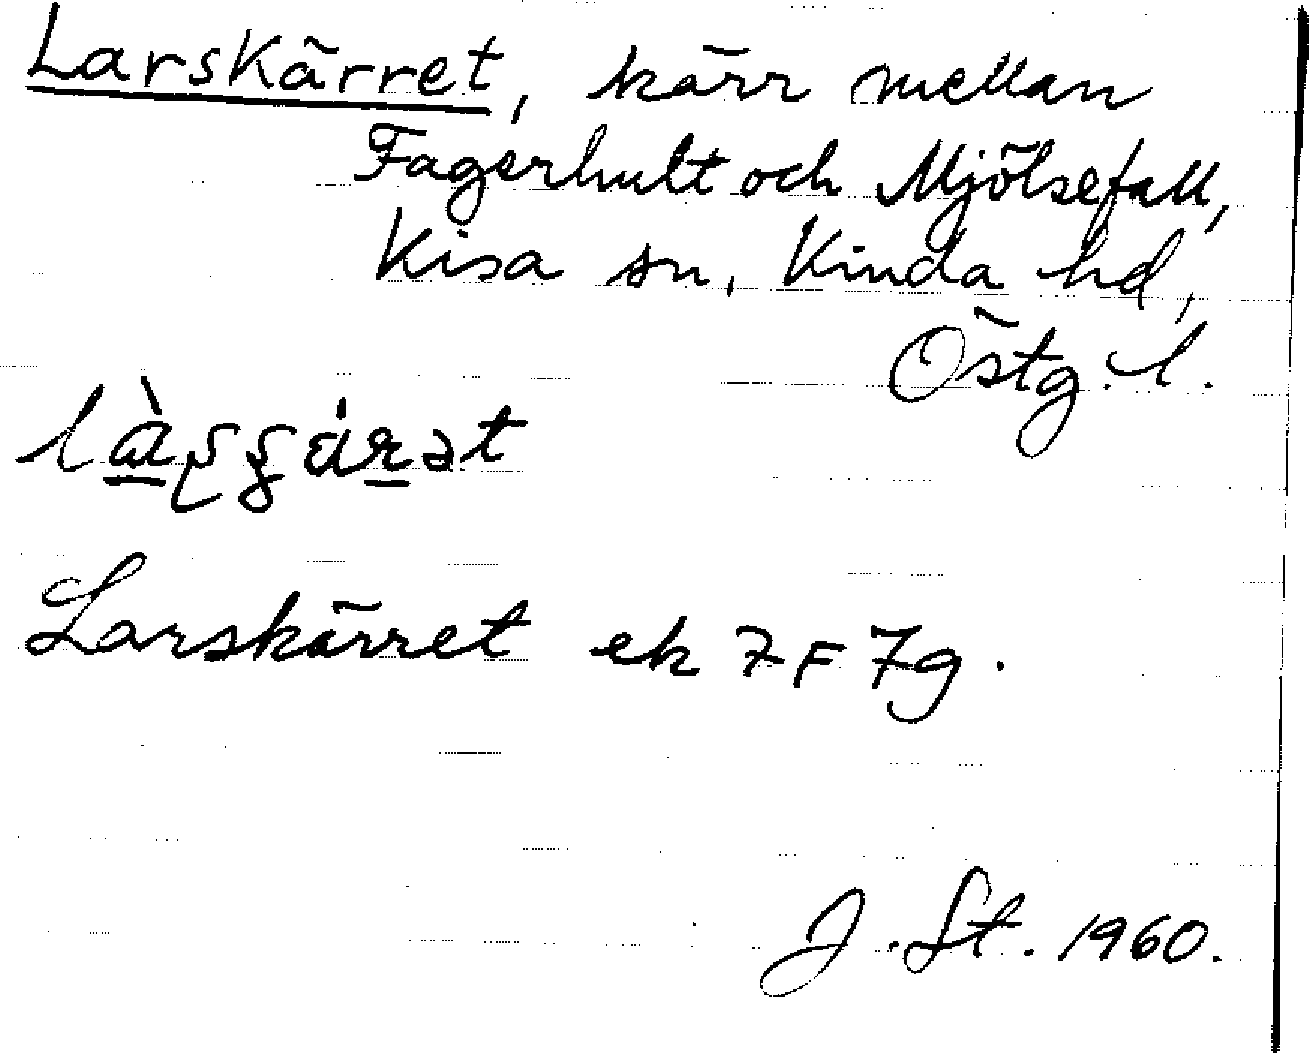 Larskärret, kärr mellan
Fagerhult och Mjölsefall,
Kisa sn, Kinda hd,
Östg. l.
Larskärret ek 7F7g.
J. St. 1960.